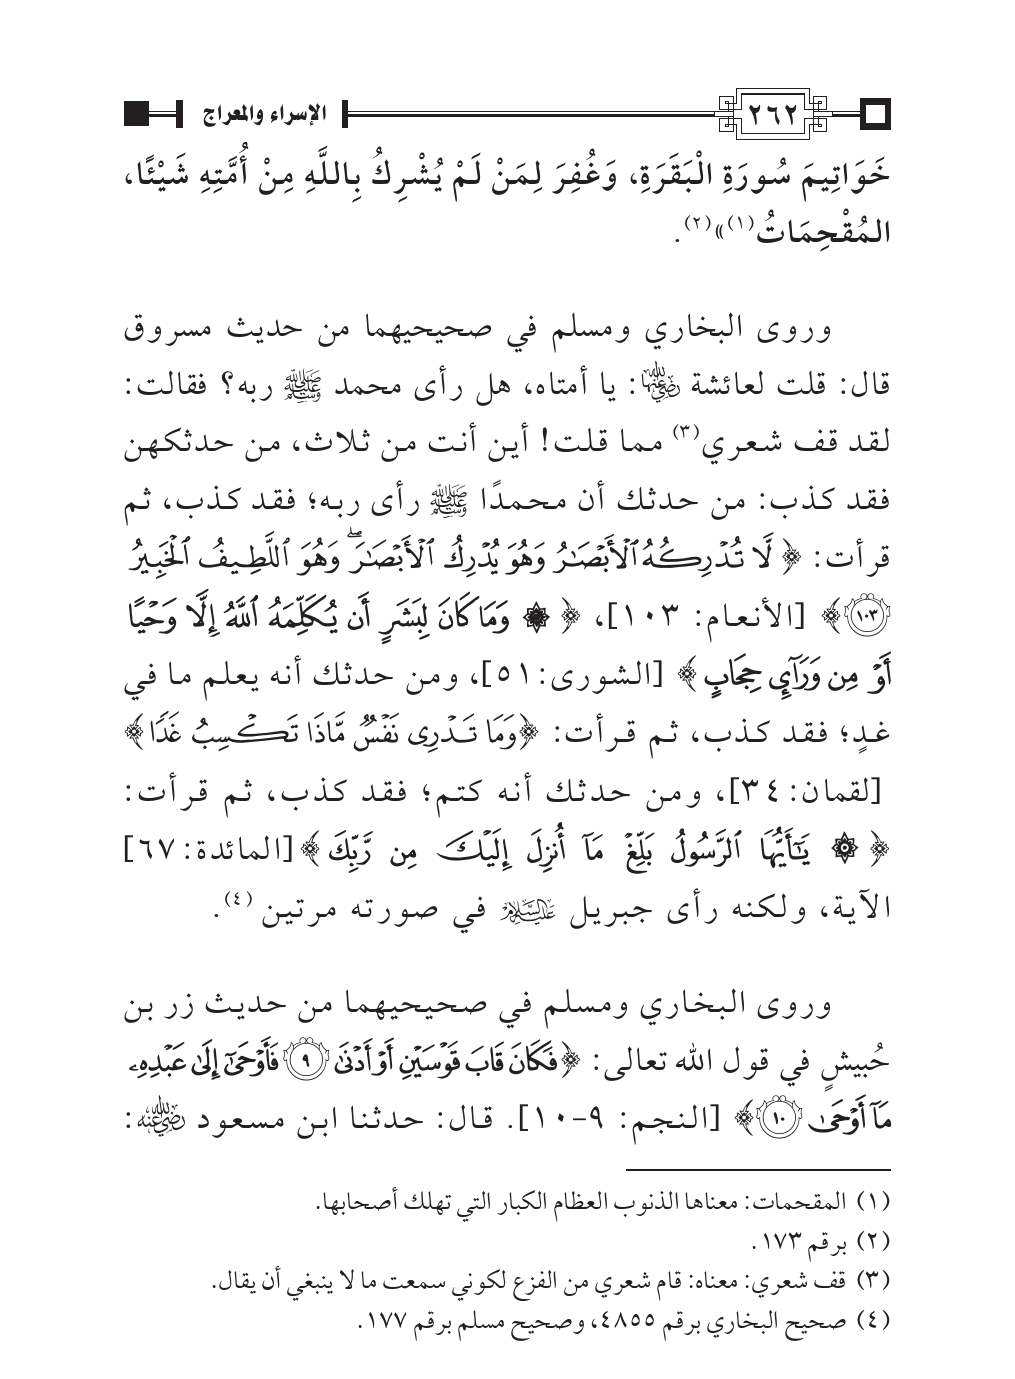 ٢٦٢ الإسراء والمعراج
خَوَاتِيمَ سُورَةِ الْبَقَرَةِ، وَغُفِرَ لِمَنْ لَمْ يُشْرِكُ بِاللَّهِ مِنْ أُمَّتِهِ شَيْئًا،
المُقْحِمَاتُ(١)»(٢).
وروى البخاري ومسلم في صحيحيهما من حديث مسروق
قال: قلت لعائشة رضي الله عنها: يا أمتاه، هل رأى محمد ﷺ ربه؟ فقالت:
لقد قف شعري(٣) مما قلت! أين أنت من ثلاث، من حدثكهن
فقد كذب: من حدثك أن محمدًا ﷺ رأى ربه؛ فقد كذب، ثم
قرأت: ﴿ لَّا تُدْرِكُهُ ٱلْأَبْصَٰرُ وَهُوَ يُدْرِكُ ٱلْأَبْصَٰرَۖ وَهُوَ ٱللَّطِيفُ ٱلْخَبِيرُ
١٠٣﴾ [الأنعام: ١٠٣]، ﴿ ۞ وَمَا كَانَ لِبَشَرٍ أَن يُكَلِّمَهُ ٱللَّهُ إِلَّا وَحْيًا
أَوْ مِن وَرَآئِ حِجَابٍ﴾ [الشورى:٥١]، ومن حدثك أنه يعلم ما في
غدٍ؛ فقد كذب، ثم قرأت: ﴿وَمَا تَدْرِى نَفْسٌ مَّاذَا تَكْسِبُ غَدًا﴾
[لقمان:٣٤]، ومن حدثك أنه كتم؛ فقد كذب، ثم قرأت:
﴿ ۞ يَٰٓأَيُّهَا ٱلرَّسُولُ بَلِّغْ مَآ أُنزِلَ إِلَيْكَ مِن رَّبِّكَ﴾[المائدة:٦٧]
الآية، ولكنه رأى جبريل عليه السلام في صورته مرتين(٤).
وروى البخاري ومسلم في صحيحيهما من حديث زر بن
حُبيشٍ في قول الله تعالى: ﴿فَكَانَ قَابَ قَوْسَيْنِ أَوْ أَدْنَىٰ ٩ فَأَوْحَىٰٓ إِلَىٰ عَبْدِهِۦ
مَآ أَوْحَىٰ ١٠﴾ [النجم: ٩-١٠]. قال: حدثنا ابن مسعود رضي الله عنه:
(١) المقحمات: معناها الذنوب العظام الكبار التي تهلك أصحابها.
(٢) برقم ١٧٣.
(٣) قف شعري: معناه: قام شعري من الفزع لكوني سمعت ما لا ينبغي أن يقال.
(٤) صحيح البخاري برقم ٤٨٥٥، وصحيح مسلم برقم ١٧٧.